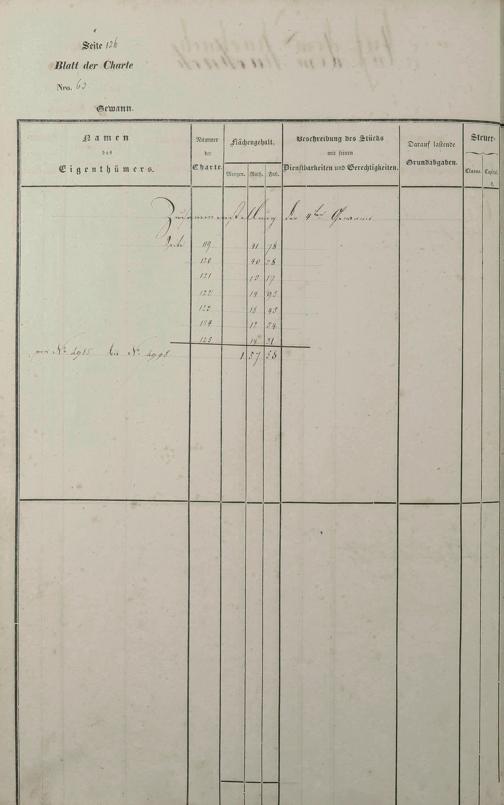 Seite 126
Blatt der Charte
Nro. 63
Gewann.
Namen des Eigenthümers.
Nummer der Charte.
Flächengehalt.
Morgen. Ruth. Fuß.
Beschreibung des Stücks mit seinen Dienstbarkeiten und Gerechtigkeiten.
Darauf lastende Grundabgaben.
Steuer-
Classe. Capital.
Zusammenstellung der 4ten Gewann
Seite 119 41 78
120 40 28
121 13 17
122 14 93
123 15 43
124 12 54
125
von No 4915 bis No 4998 1 57 58